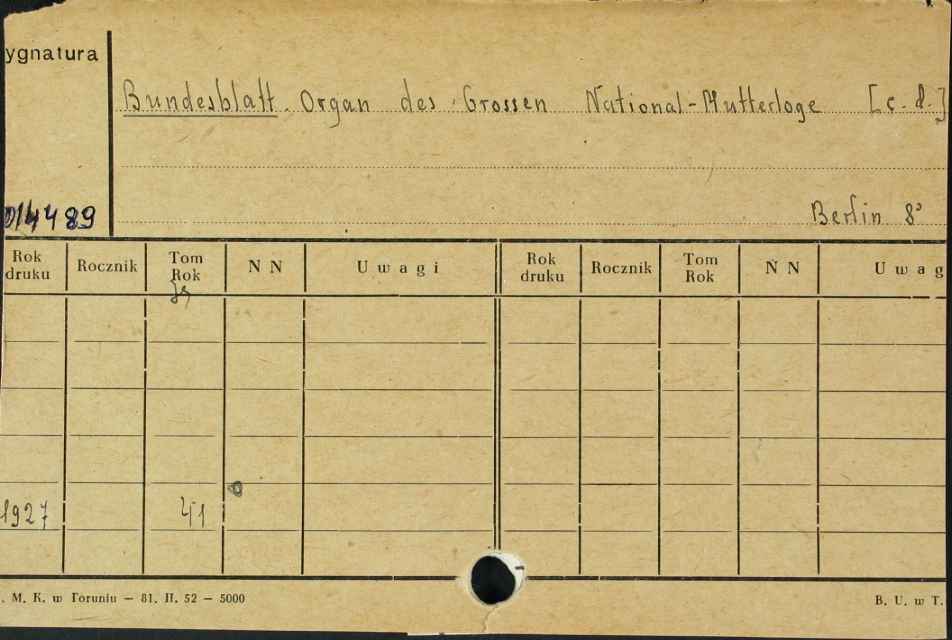 ygnatura
Bundesblatt. Organ des Grossen National-Mutterloge [c. d.]
4489
Berlin 8°
Rok druku Rocznik Tom Rok N N Uwagi Rok druku Rocznik Tom Rok N N Uwag
1927 41
. M. K. w Toruniu — 81. II. 52 — 5000 B. U. w T.